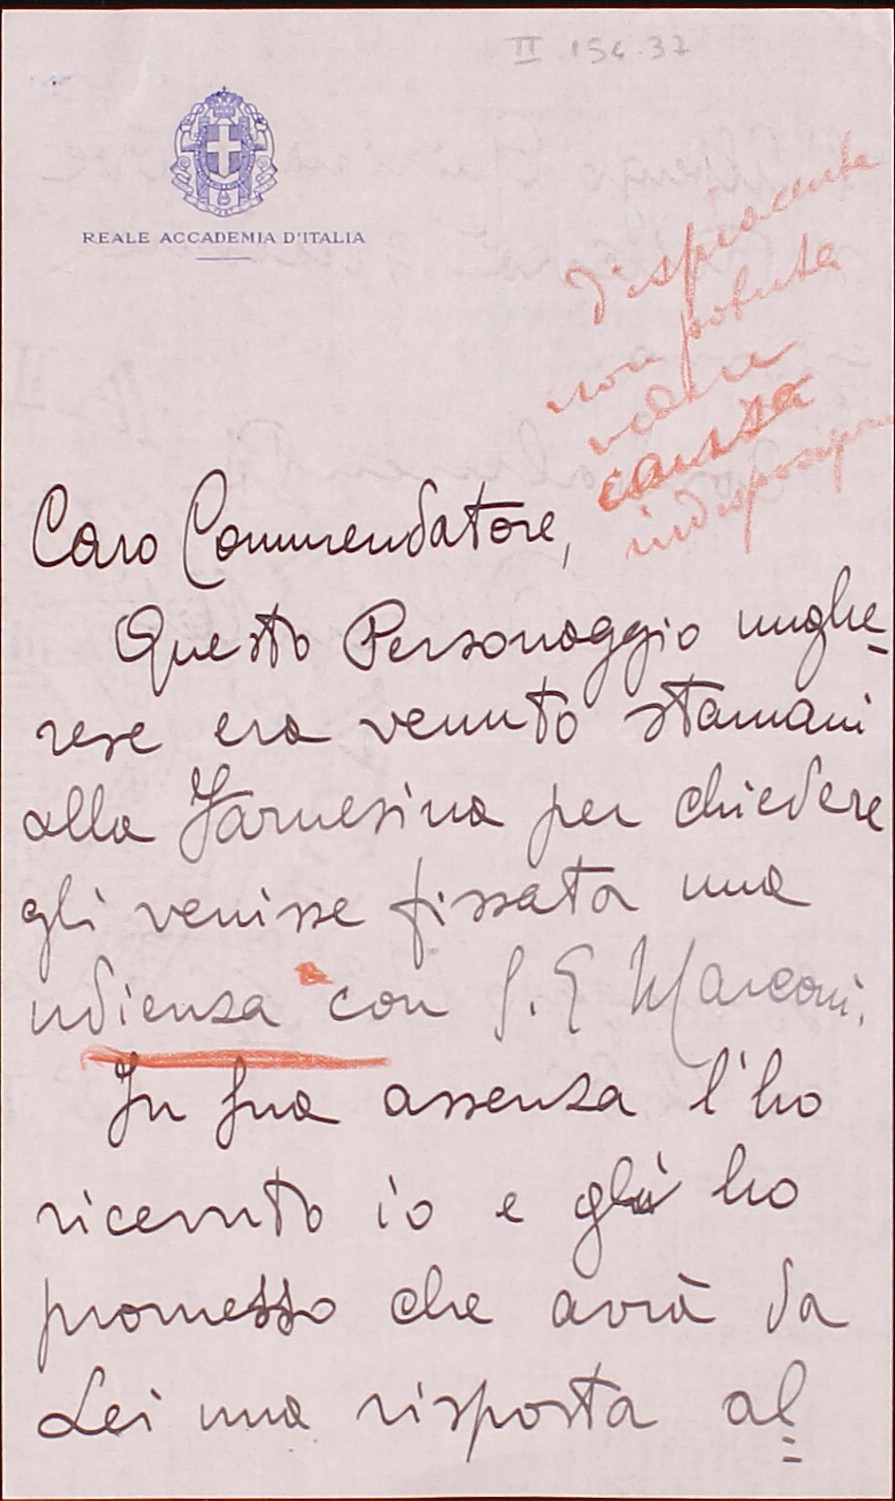 II 156.37
REALE ACCADEMIA D'ITALIA
dispiacente
non potuta
causa
indisposizio
Caro Commendatore,
Questo Personaggio unghe=
rese era venuto stamani
alla Farnesina per chiedere
gli venisse fissata una
udienza con S. E Marconi.
In Sua assenza l'ho
ricevuto io e gli ho
promesso che avrà da
Lei una risposta al=